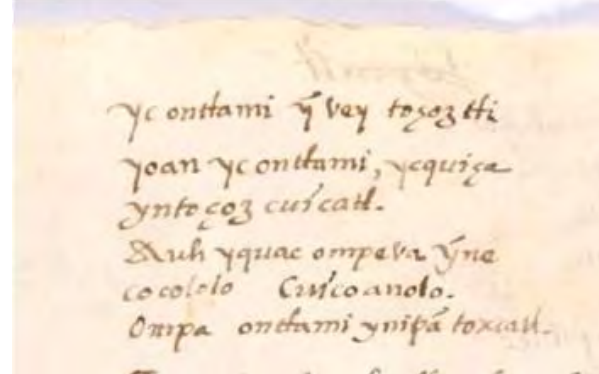 yc onttami ȳ vey toçoztli
yoan yc onttami, ycquiça
yntoçoz cuicatl.
Auh yquac ompeva ȳne
cocololo Cuicoanolo.
Ompa onttami ynipā toxcatl.